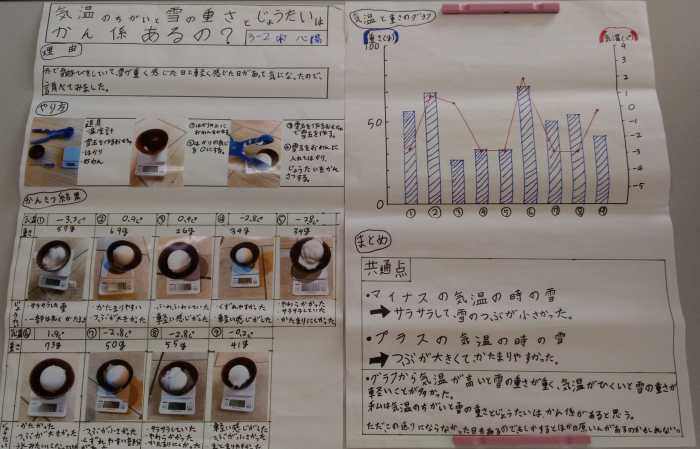 気温のちがいと雪の重さとじょうたいは
かん係あるの?
理由
外で雪遊びをしていて、雪が重く感じた日と軽く感じた日があって気になったので、
調べてみました。
やり方
道具
・温度計
・はかり
・おわん
かんさつ結果
気温① -3.7℃ ② 0.9℃ ③ 0.9℃ ④ -2.8℃ ⑤ -2.8℃
重さ 59g 69g 26g 34g 34g
じょうたい
・サラサラした雪
・かたまりやすい
・つぶが大きかった
・ふわふわしていた
・軽い感じがした
・くずれやすかった
・軽い感じがした
・やわらかかった
サラサラしていた
・かたまりにくかった
気温⑥ 1.9℃ ⑦ -2.8℃ ⑧ -2.8℃ ⑨ -0.2℃
重さ 73g 50g 55g 41g
・かたかった
・つぶが大きかった
・つぶが小さかった
・サラサラしていた
・やわらかかった
・かたまりにくかった
・軽い感じがした
・つぶが小さかった
気温と重さのグラフ
重さ(g) 気温(℃)
100
50
0
4
3
2
1
0
-1
-2
-3
-4
-5
① ② ③ ④ ⑤ ⑥ ⑦ ⑧ ⑨
まとめ
共通点
・マイナスの気温の時の雪
→サラサラして、雪のつぶが小さかった。
・プラスの気温の時の雪
→つぶが大きくて、かたまりやすかった。
・グラフから気温が高いと雪の重さが重く、気温がひくいと雪の重さが
軽いことが多かった。
私は気温のちがいと雪の重さとじょうたいは、かん係があると思う。
ただこの通りにならなかった日もあるのでもしかするとほかの原いんがあるのかもしれない。